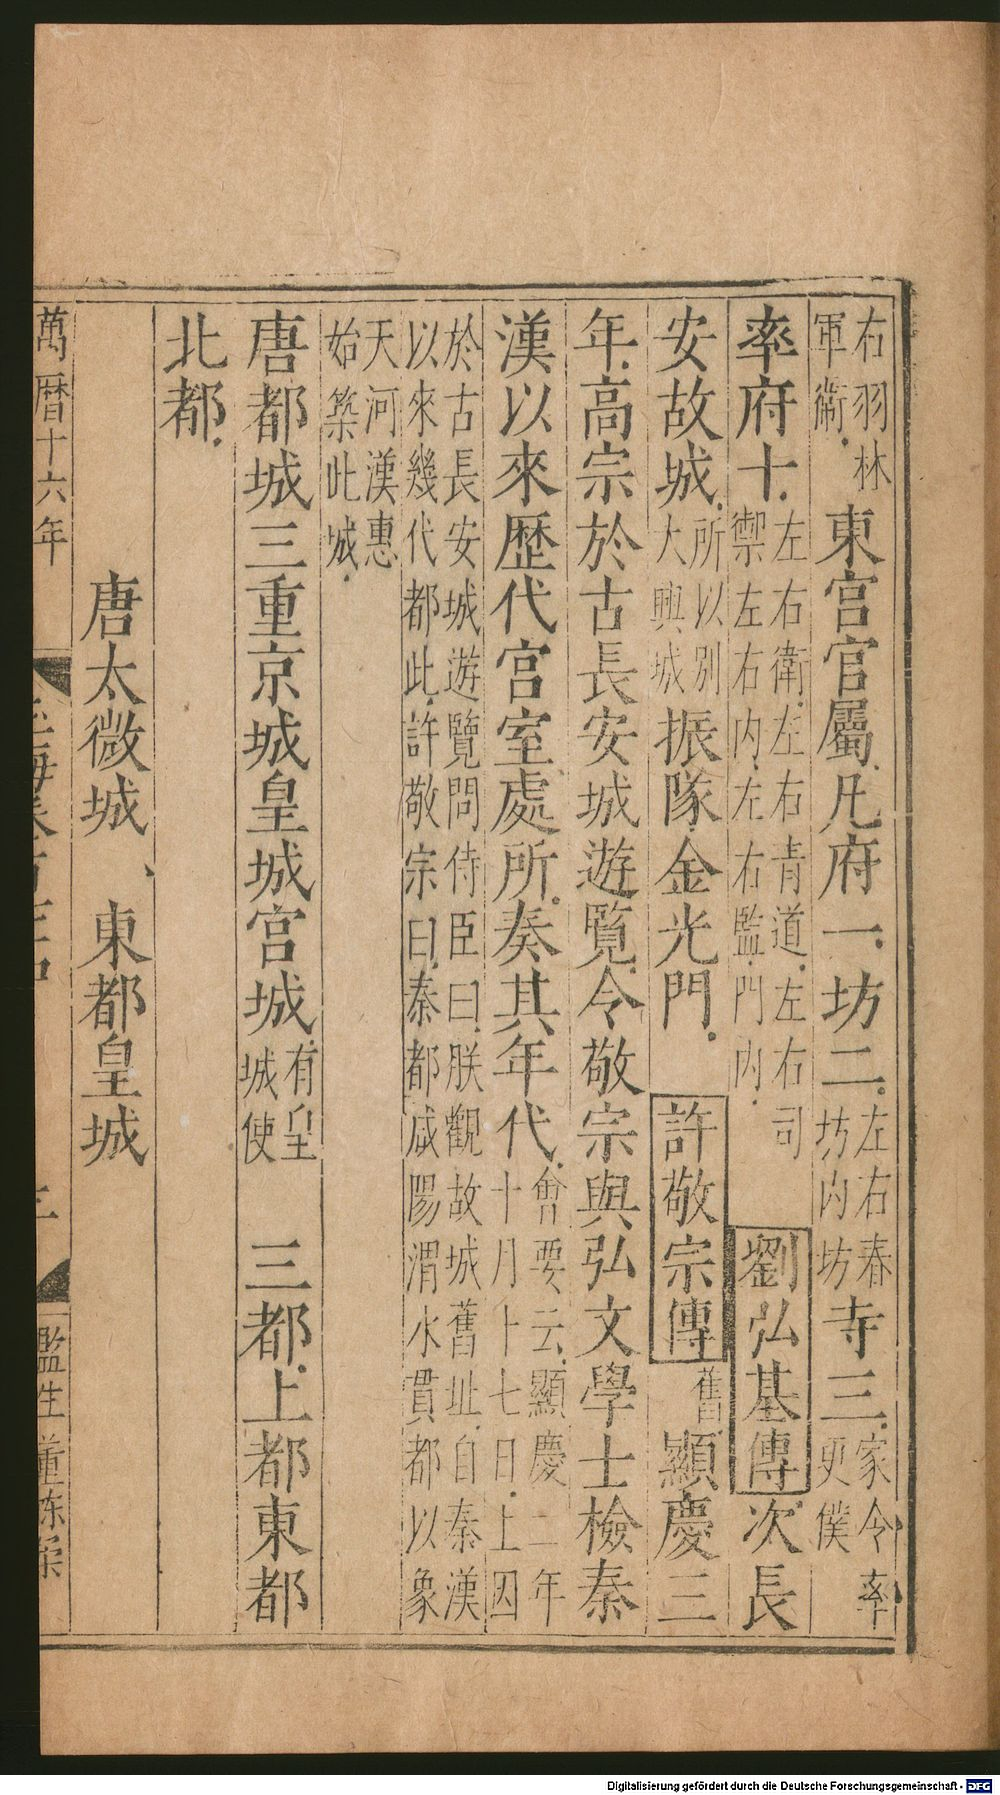 右羽林軍衛東宮官屬凡府一坊二左右春坊内坊寺三家令率更僕
率府十左右衛左右青道左右司禦左右内左右監門内劉弘基傳次長
安故城所以別大興城振隊金光門許敬宗傳舊顯慶三
年高宗於古長安城遊覽令敬宗與弘文學士檢秦
漢以來歷代宮室處所奏其年代會要云顯慶二年十月十七日上因
於古長安城遊覽問侍臣曰朕觀故城舊址自秦漢以來幾代都此許敬宗曰秦都咸陽渭水貫都以象
天河漢惠始築此城
唐都城三重京城皇城宮城有皇城使 三都上都東都
北都
唐太微城、東都皇城
萬曆十六年 三 監生董
Digitalisierung gefördert durch die Deutsche Forschungsgemeinschaft - DFG